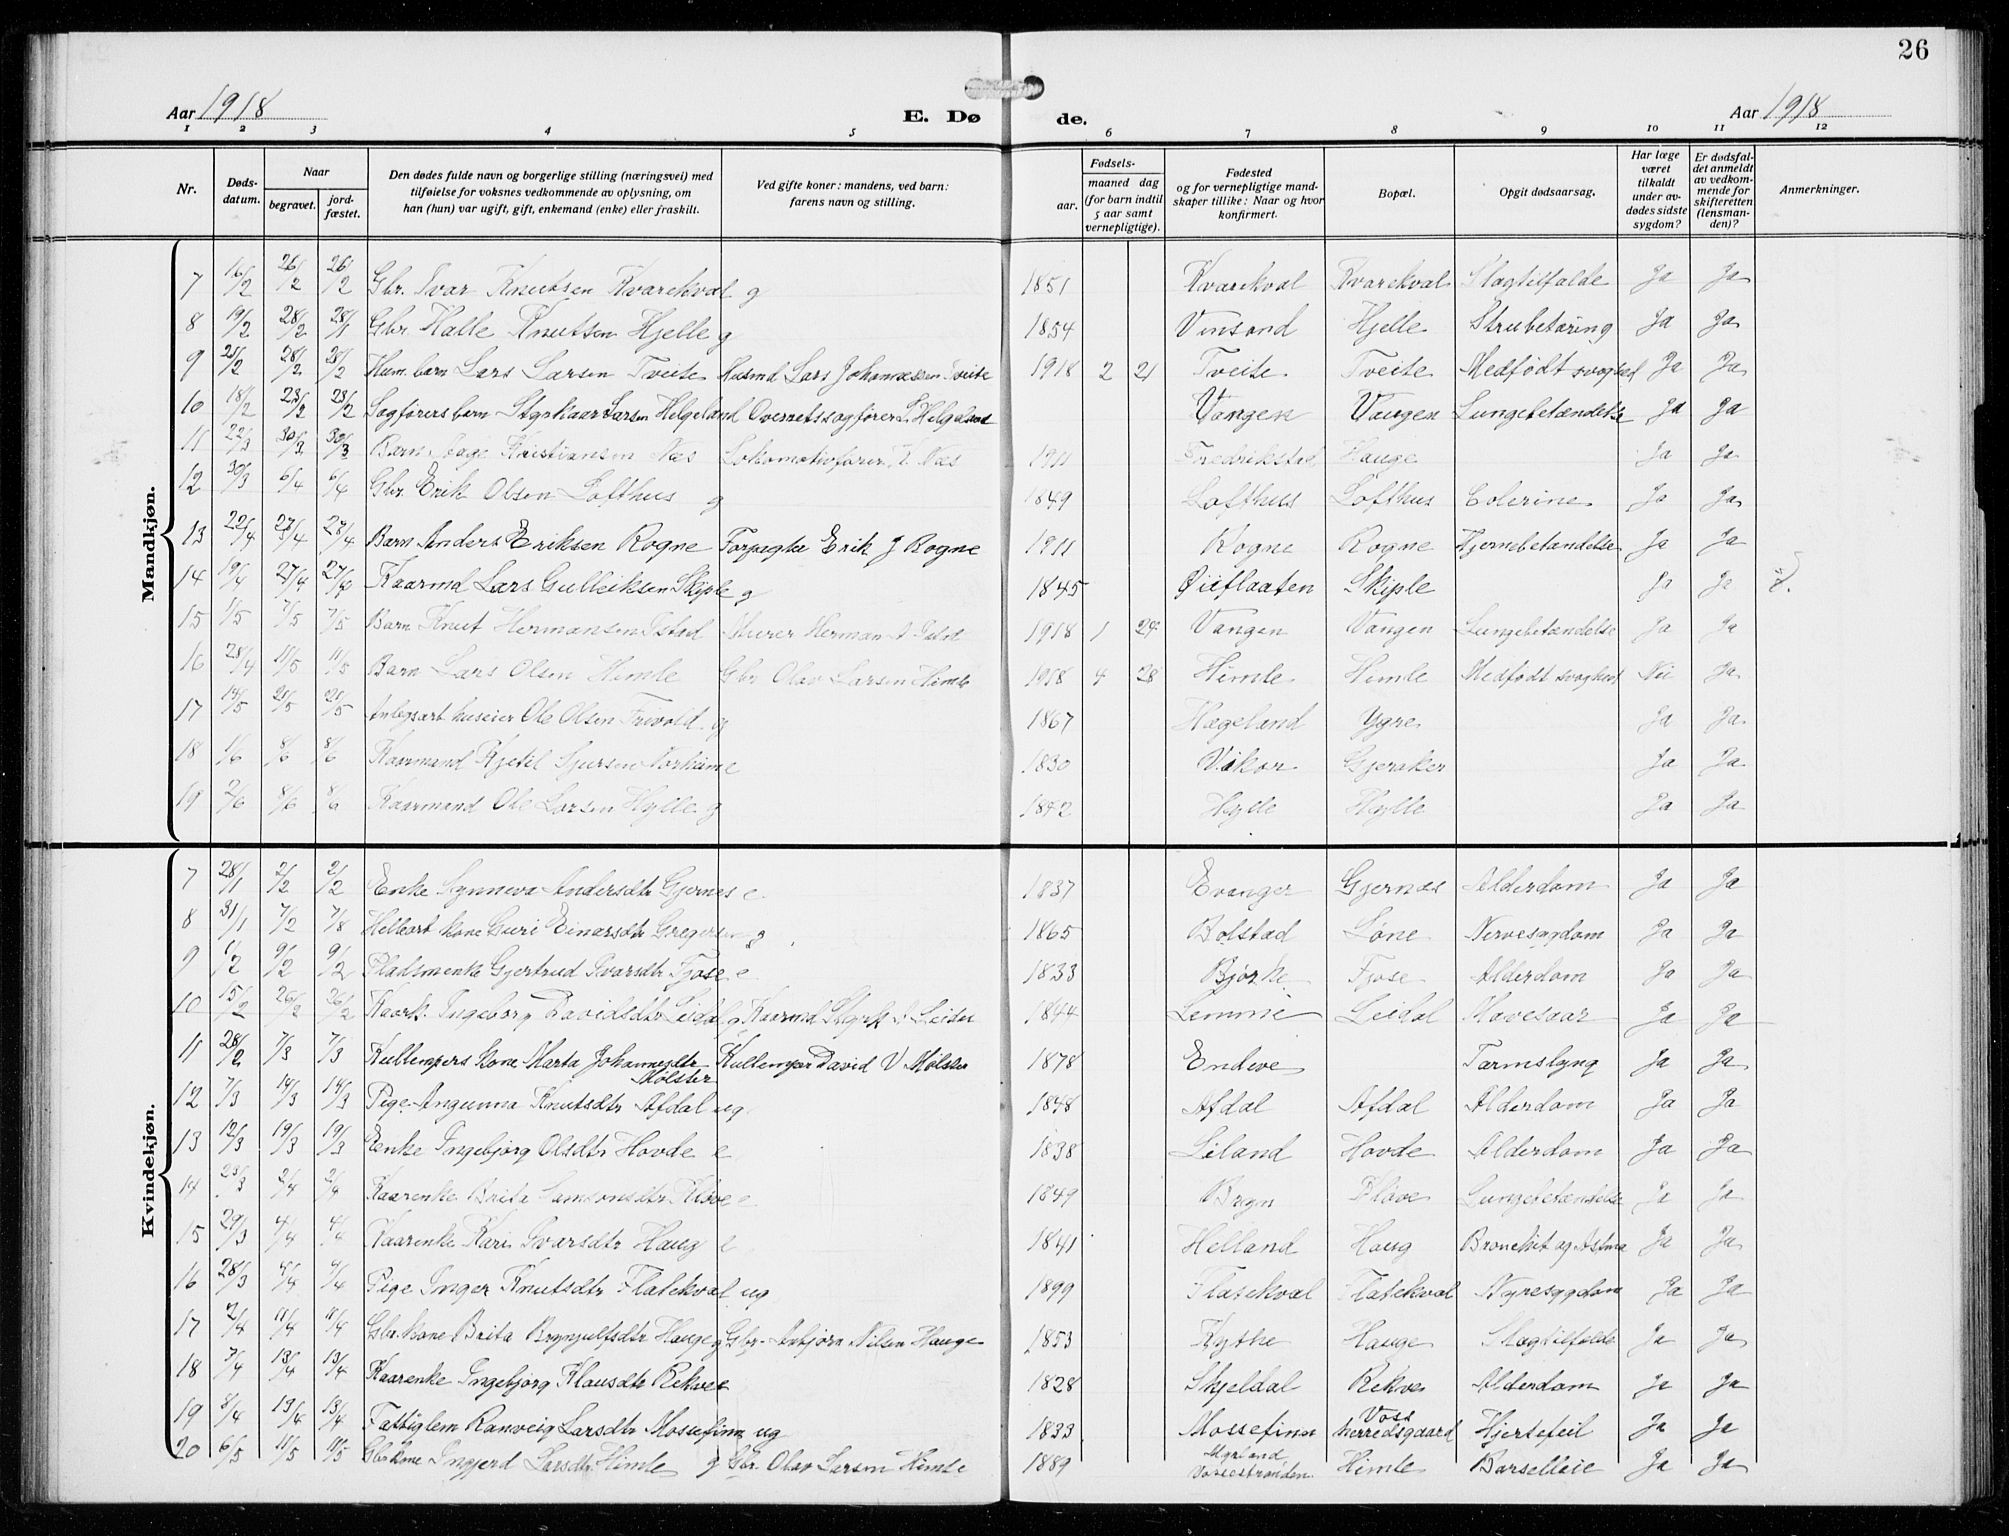 26
Aar 1918 E. Dø de. Aar 1918
1 2 3 4 5 6 7 8 9 10 11 12
Nr. Døds-datum. Naar begravet. jord-fæstet. Den dødes fulde navn og borgerlige stilling (næringsvei) med tilføielse for voksnes vedkommende av oplysning, om han (hun) var ugift, gift, enkemand (enke) eller fraskilt. Ved gifte koner: mandens, ved barn: farens navn og stilling. Fødsels- aar. maaned dag (for barn indtil 5 aar samt vernepligtige). Fødested og for vernepligtige mand-skaper tillike: Naar og hvor konfirmert. Bopæl. Opgit dødsaarsag. Har læge været tilkaldt under av-dødes sidste sygdom? Er dødsfal-det anmeldt av vedkom-mende for skifteretten (lensman-den)? Anmerkninger.
Mandkjøn.
7 16/2 26/2 26/2 Gbr. Ivar Knutsen Kvarekval g 1851 Kvarekval Kvarekval Slagtilfælde Ja Ja
8 19/2 28/2 28/1 Gbr. Halle Knutsen Hjelle g 1854 Vinsand Hjelle Strubetæring Ja Ja
9 25/2 28/2 28/2 Husm. barn Lars Larsen Tveite Husmd Lars Johannessen Tveite 1918 2 21 Tveite Tveite Medfødt svaghed Ja Ja
10 18/2 23/2 23/2 Sagførers barn Styrkaar Larsen Helgeland Overretssagfører L. Helgeland Vangen Vangen Lungebetændelse Ja Ja
11 22/3 30/3 30/3 Barn Aage Kristiansen Næs Lokomotivfører K. Næs 1911 Fredrikstad Hauge Ja Ja
12 30/3 6/4 6/4 Gbr. Erik Olsen Lofthus g 1849 Lofthus Lofthus Colerine Ja Ja
13 22/4 27/4 27/4 Barn Anders Eriksen Rogne Forpagter Erik J Rogne 1911 Rogne Rogne Hjernebetændelse Ja Ja
14 19/4 27/4 27/4 Kaarmd Lars Gulleiksen Skiple g 1845 Øieflaaten Skiple Ja Ja
15 1/5 7/5 7/5 Barn Knut Hermansen Istad Murer Herman Istad 1918 1 24 Vangen Vangen Lungebetændelse Ja Ja
16 28/4 11/5 11/5 Barn Lars Olsen Himle Gbr Olav Larsen Himle 1918 4 28 Himle Himle Medfødt svaghed Nei Ja
17 14/5 21/5 21/5 Anlegsarb. huseier Ole Olsen Trivold g 1867 Hægeland Ygre Ja Ja
18 1/6 8/6 8/6 Kaarmand Kjetil Sjursen Norheim e 1830 Vikør Gjeraker Ja Ja
19 2/6 8/6 8/6 Kaarmand Ole Larsen Hylle g 1842 Hylle Hylle Ja Ja
Kvindekjøn.
7 28/1 2/2 2/2 Enke Synneva Andersdtr Gjernes e 1837 Evanger Gjernæs Alderdom Ja Ja
8 31/1 7/2 7/8 Helleart kone Guri Einarsdtr Gregersen g 1865 Bolstad Løne Nervesygdom Ja Ja
9 1/2 9/2 9/2 Pladsmenke Gjertrud Ivarsdtr Fjose e 1833 Bjørke Fjose Alderdom Ja Ja
10 15/2 26/2 26/2 Kaark. Ingeborg Davidsdtr Leidal g Kaarmd Styrk Leidal 1844 Lemme Leidal Mavesaar Ja Ja
11 28/2 7/3 7/3 Kullempers kone Marta Johannesdtr Mølster Kullemper David V Mølster 1878 Endeve Tarmslyng Ja Ja
12 7/3 14/3 14/3 Pige Angunna Knutsdtr Afdal ug 1848 Afdal Afdal Alderdom Ja Ja
13 12/3 19/3 19/3 Enke Ingebjørg Olsdtr Hovde e 1838 Liland Hovde Alderdom Ja Ja
14 23/3 2/4 2/4 Kaarenke Brita Samsonsdtr Kløve e 1849 Bryn Kløve Lungebetændelse Ja Ja
15 29/3 4/4 4/4 Kaarenke Kari Ivarsdtr Haug e 1841 Helland Haug Bronchit og Astma Ja Ja
16 28/3 4/4 4/4 Pige Inger Knutsdtr Flatekval ug 1899 Flatekval Flatekval Nyresygdom Ja Ja
17 2/4 11/4 11/4 Gbr. kone Brita Brynjulfsdtr Hauge g Gbr. Asbjørn Nilsen Hauge 1853 Kythe Hauge Slagtilfælde Ja Ja
18 7/4 13/4 13/4 Kaarenke Ingebjørg Klausdtr Rekve e 1828 Skjeldal Rekve Alderdom Ja Ja
19 8/4 13/4 13/4 Fattiglem Ranveig Larsdtr Mossefinn ug 1833 Mossefinn Voss herredsgaard Hjertefeil Ja Ja
20 6/5 11/5 11/5 Gbr. kone Ingjerd Larsdtr Himle g Gbr. Olav Larsen Himle 1889 Myrland Vossestranden Himle Barselleie Ja Ja